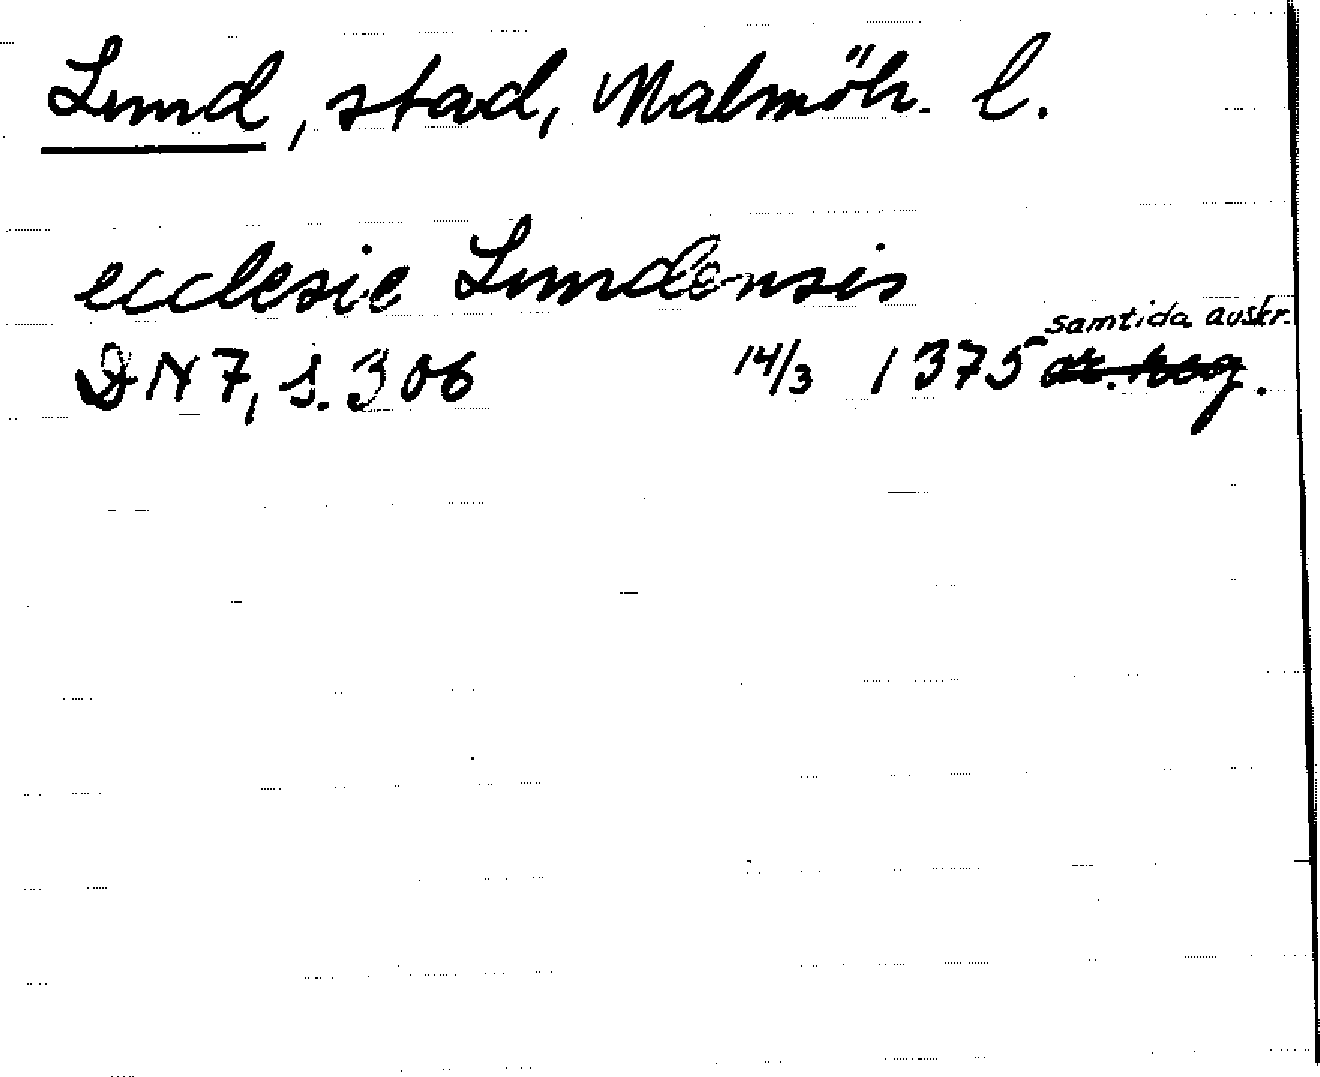 Lund, stad, Malmöh. l.
ecclesie Lundensis
samtida avskr.
DN 7, s. 306 14/3 1375